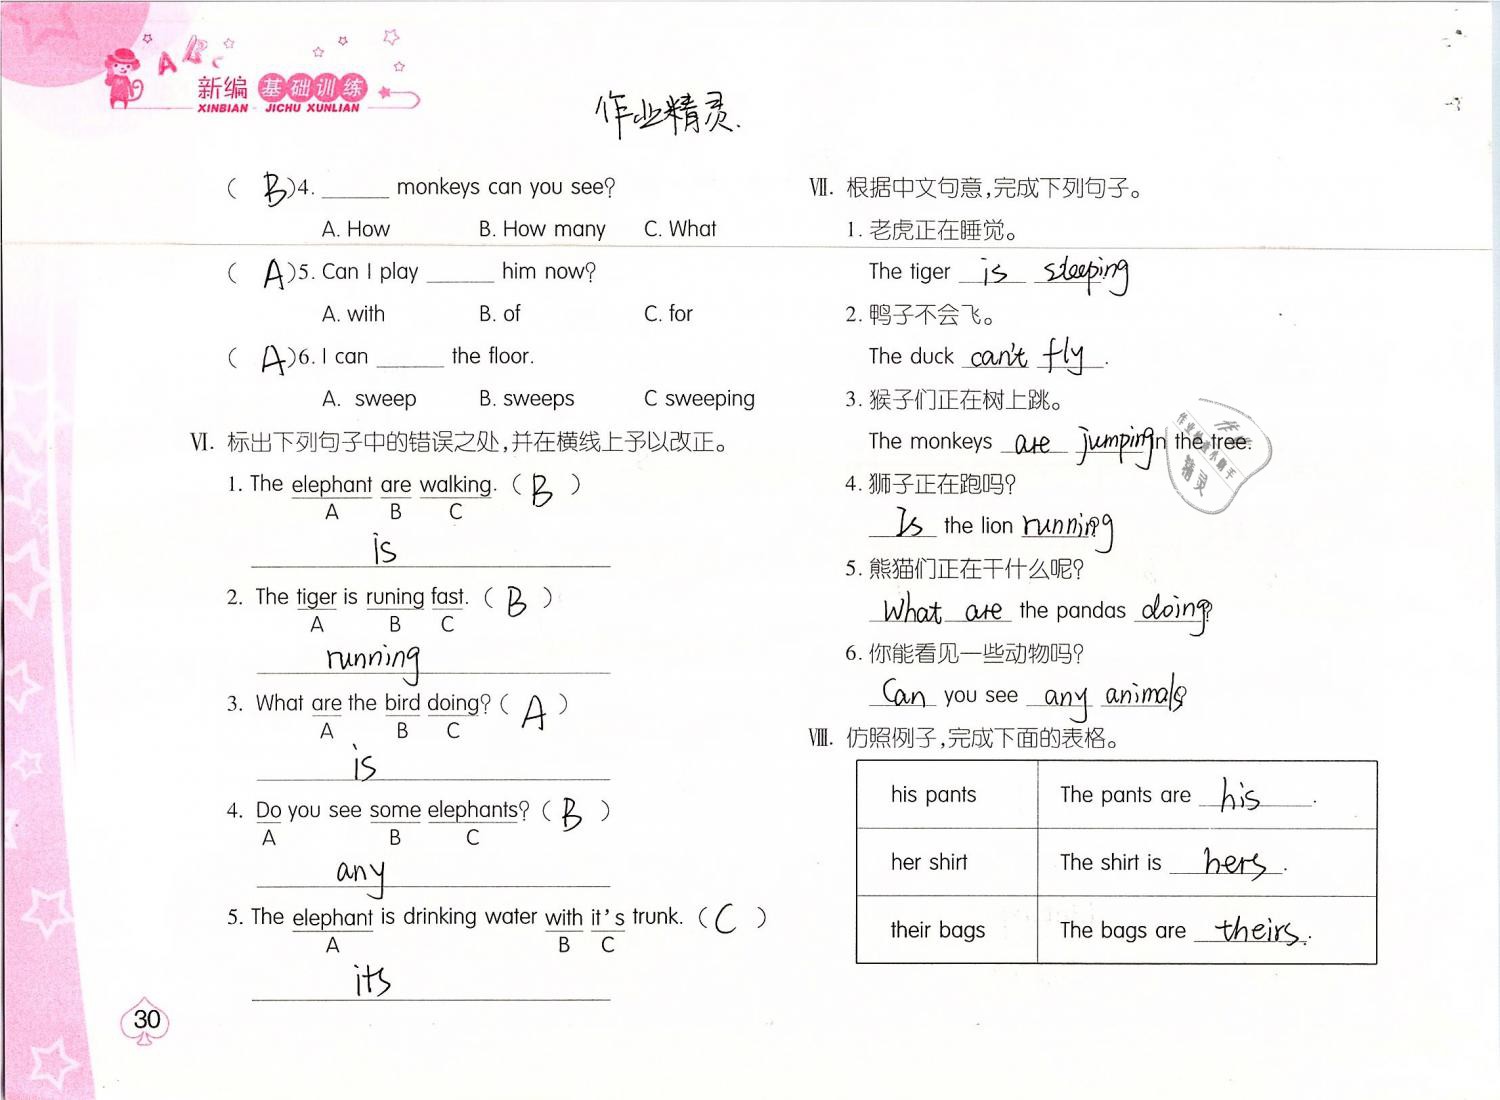 ABC
新编 基础训练
XINBIAN JICHU XUNLIAN
作业精灵.
( B )4. ______ monkeys can you see?
A. How B. How many C. What
( A )5. Can I play ______ him now?
A. with B. of C. for
( A )6. I can ______ the floor.
A. sweep B. sweeps C sweeping
Ⅵ. 标出下列句子中的错误之处,并在横线上予以改正。
1. The elephant are walking. ( B )
A B C
is
2. The tiger is runing fast. ( B )
A B C
running
3. What are the bird doing? ( A )
A B C
is
4. Do you see some elephants? ( B )
A B C
any
5. The elephant is drinking water with it's trunk. ( C )
A B C
its
30
Ⅶ. 根据中文句意,完成下列句子。
1. 老虎正在睡觉。
The tiger is sleeping
2. 鸭子不会飞。
The duck can't fly.
3. 猴子们正在树上跳。
The monkeys are jumping in the tree.
4. 狮子正在跑吗?
Is the lion running?
5. 熊猫们正在干什么呢?
What are the pandas doing?
6. 你能看见一些动物吗?
Can you see any animals?
Ⅷ. 仿照例子,完成下面的表格。
his pants The pants are his.
her shirt The shirt is hers.
their bags The bags are theirs.
作业
作业检查小助手
精灵